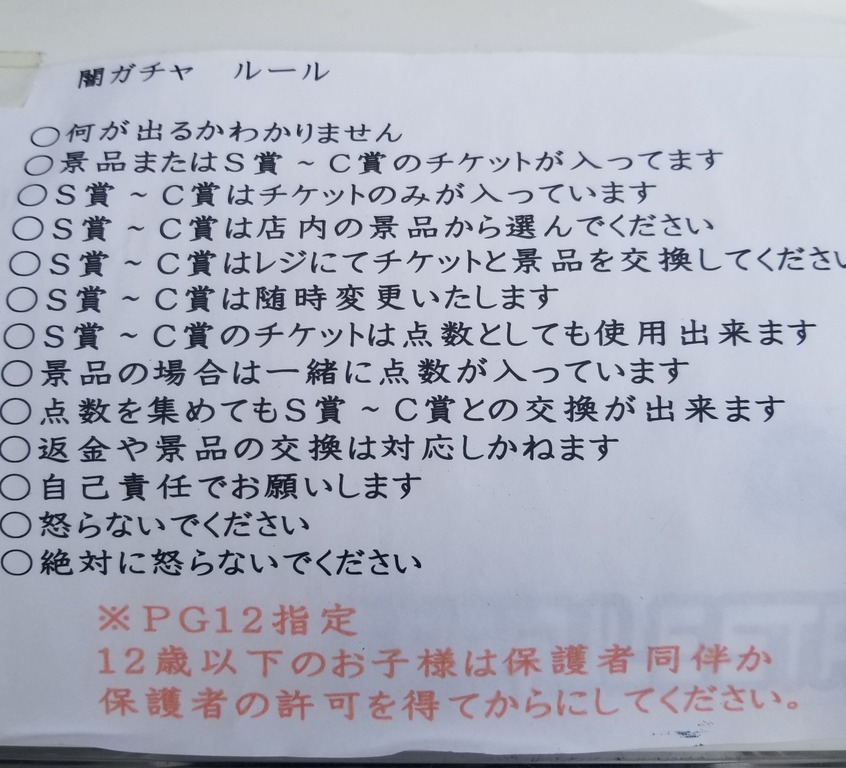 闇ガチャ ルール
○何が出るかわかりません
○景品またはS賞~C賞のチケットが入ってます
○S賞~C賞はチケットのみが入っています
○S賞~C賞は店内の景品から選んでください
○S賞~C賞はレジにてチケットと景品を交換してください
○S賞~C賞は随時変更いたします
○S賞~C賞のチケットは点数としても使用出来ます
○景品の場合は一緒に点数が入っています
○点数を集めてもS賞~C賞との交換が出来ます
○返金や景品の交換は対応しかねます
○自己責任でお願いします
○怒らないでください
○絶対に怒らないでください
※PG12指定
12歳以下のお子様は保護者同伴か
保護者の許可を得てからにしてください。